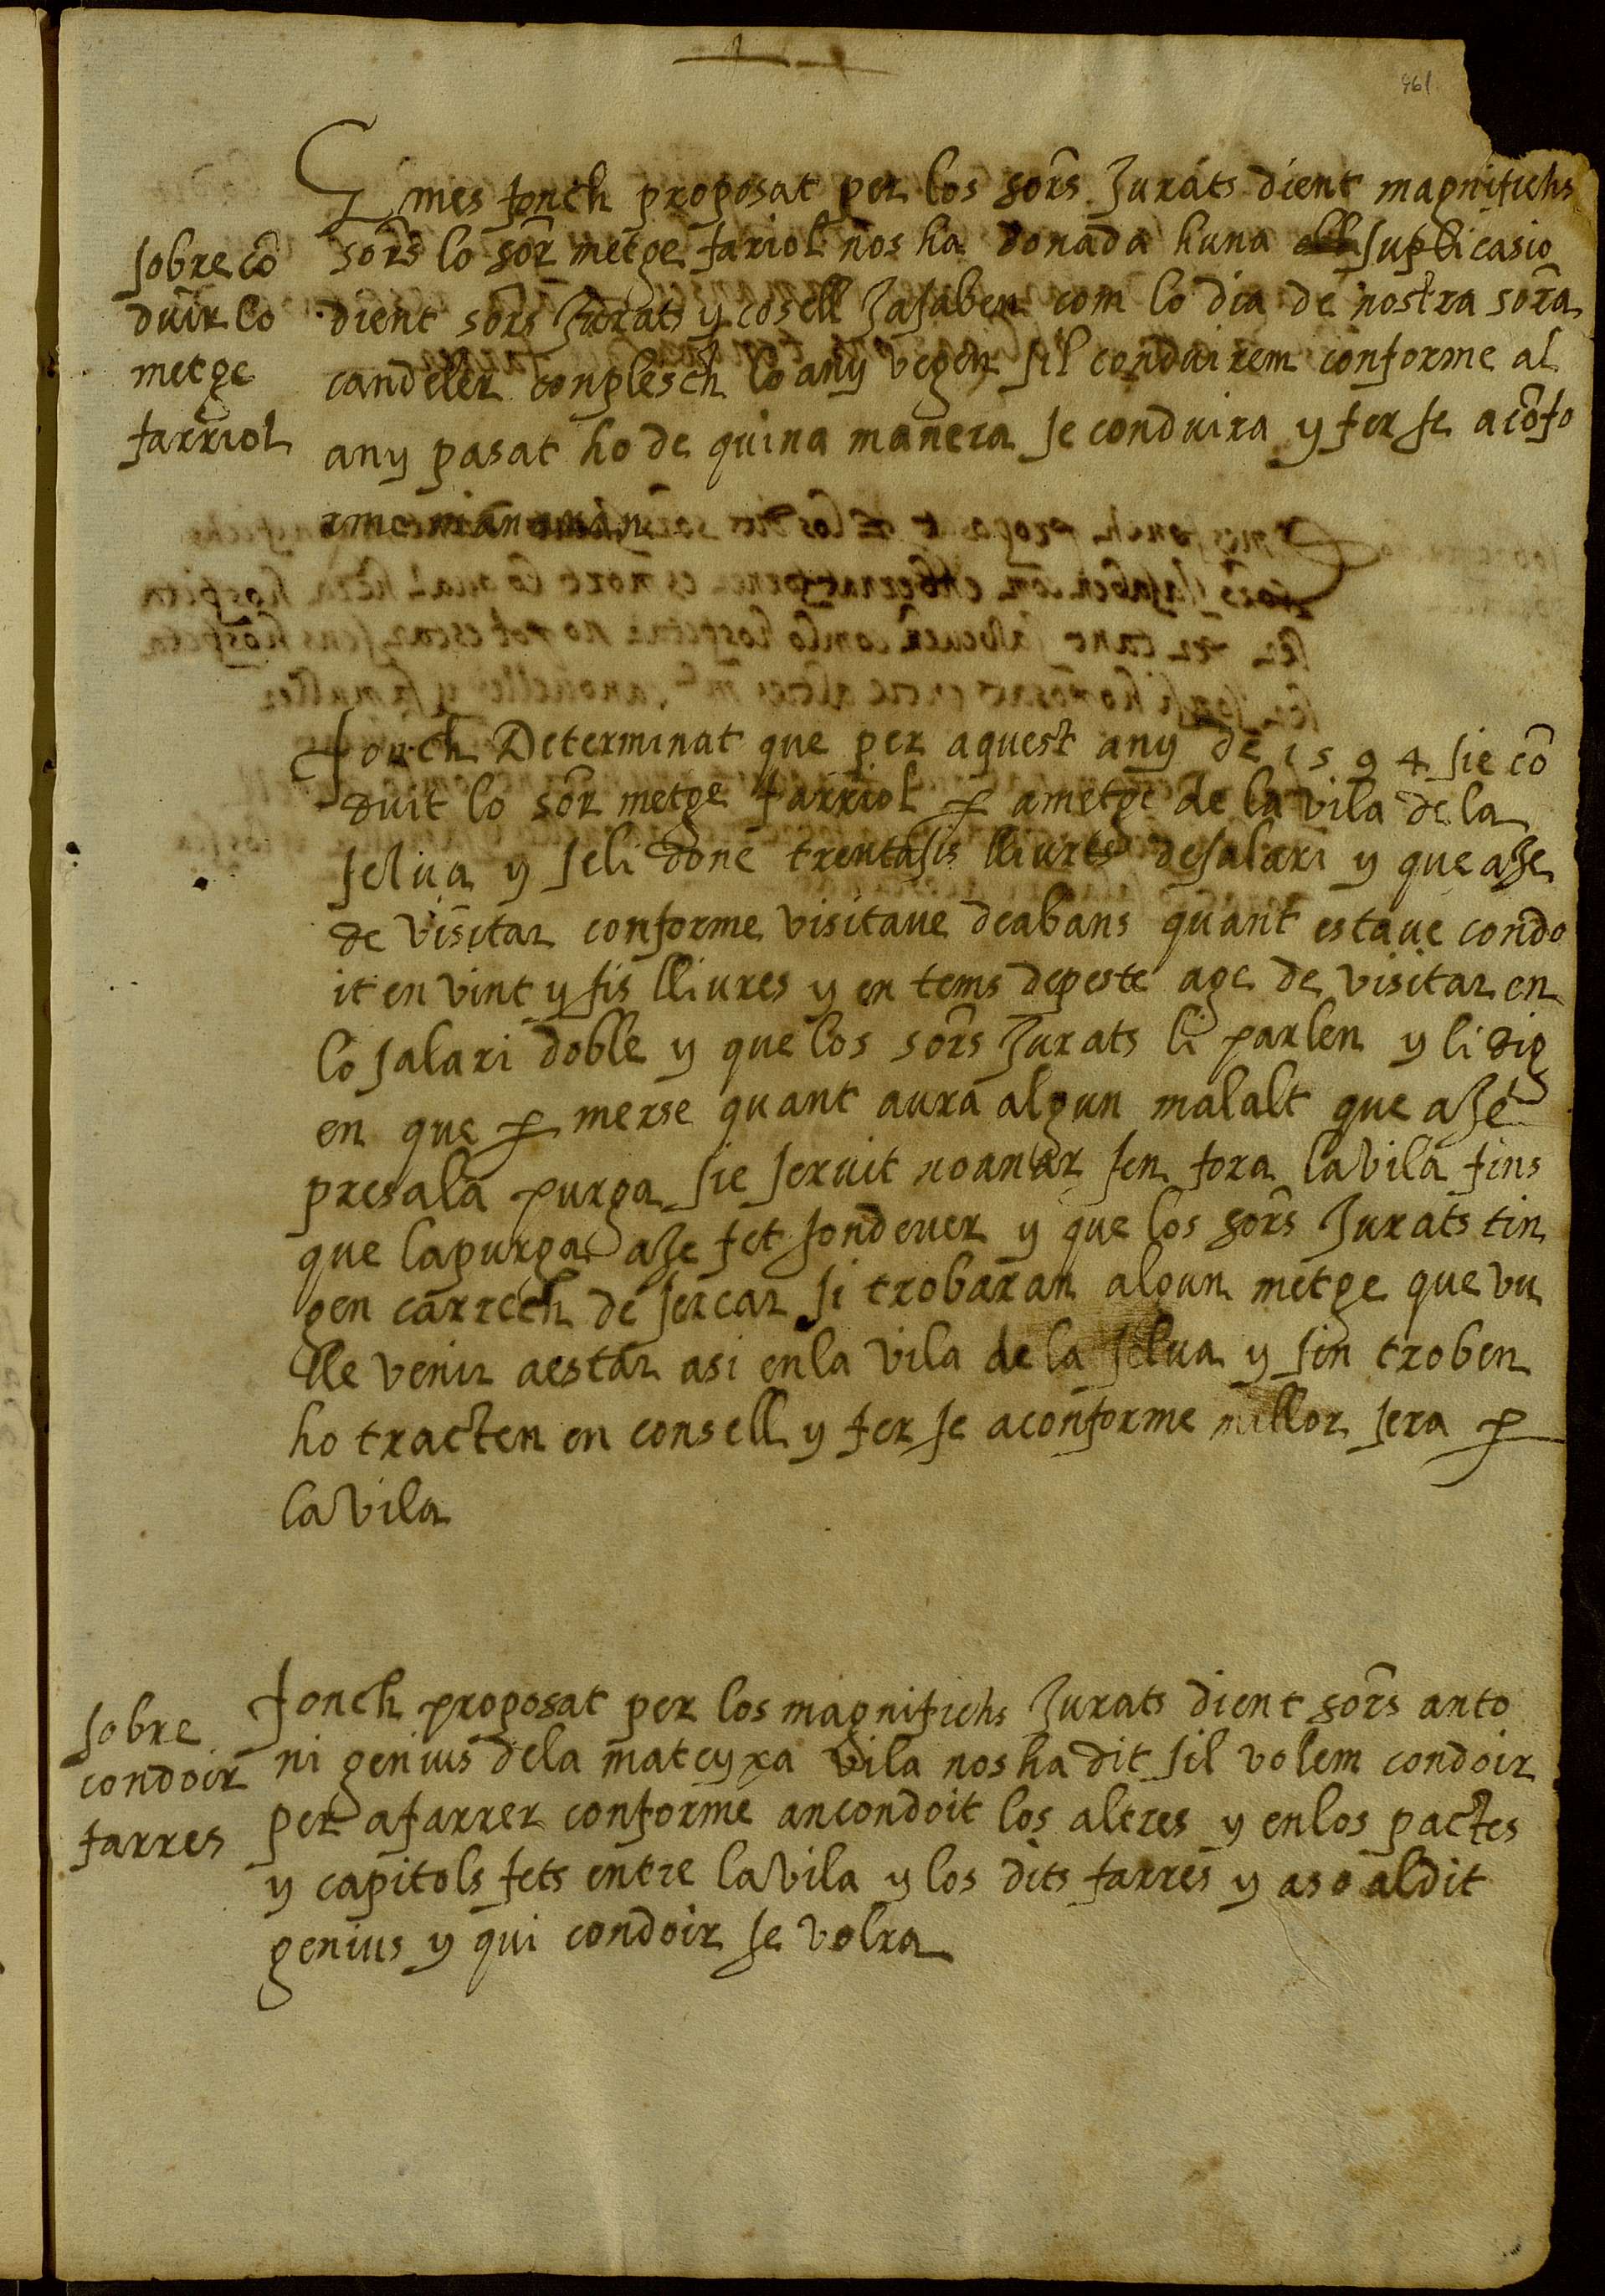 961
E mes fonch proposat per los sors Jurats dient magnifichs
sors lo sor metge fariol nos ha donada huna suplicasio
dient sors Jurats y cosell Ja saben com lo dia de nostra sora
candeler conplesch lo any vegen sil conduirem conforme al
any pasat ho de quina manera se conduira y fer se a cōfo
rme
sobre cō
duir lo
metge
farriol
fonch Determinat que per aquest any de 1594 sie cō
duit lo sor metge farriol p ametge de la vila de la
selua y seli done trentasis lliures de salari y que aJe
de visitar conforme visitaue deabans quant estaue condo
it en vint y sis lliures y en tems de peste age de visitar en
lo salari doble y que los sors Jurats li parlen y li dig
en que p merse quant aura algun malalt que aJe
presa la purga sie seruit no anar sen fora la vila fins
que la purga aJe fet son deuer y que los sors Jurats tin
gen carrech de sercar si trobaran algun metge que vu
lle venir a estar asi en la vila de la selua y sin troben
ho tracten en consell y fer se a conforme millor sera p
la vila
sobre
condoir
farres
fonch proposat per los magnifichs Jurats dient sors anto
ni genius de la mateyxa vila nos ha dit sil volem condoir
per a farrer conforme an condoit los altres y en los pactes
y capitols fets entre la vila y los dits farres y aso al dit
genius y qui condoir se volra